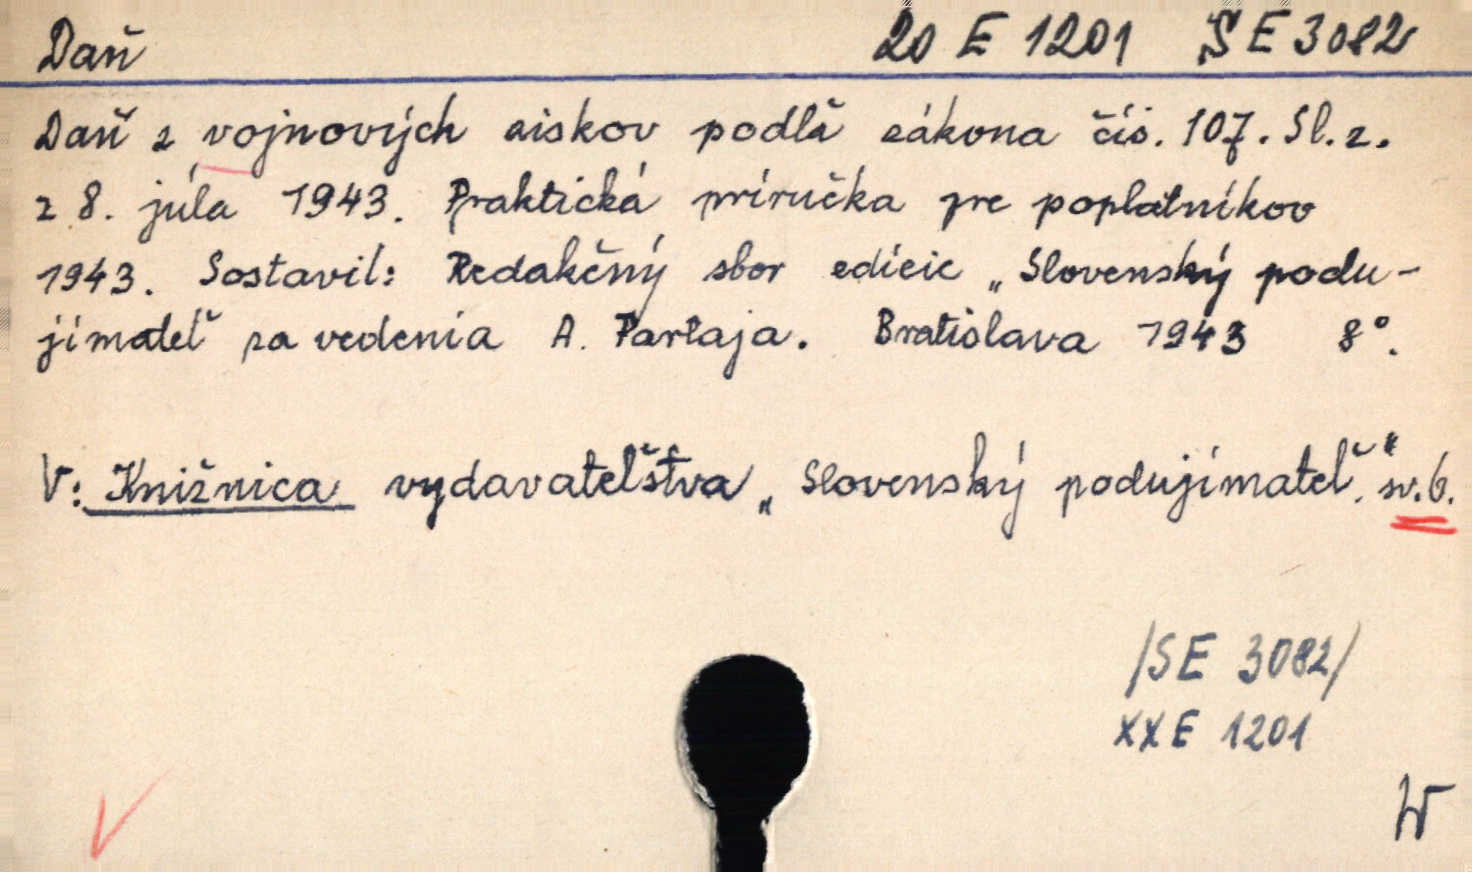 Daň 20 E 1201 SE 3082
Daň z vojnových ziskov podľa zákona čís. 107. Sl. z.
z 8. júla 1943. Praktická príručka pre poplatníkov
1943. Sostavil: Redakčný sbor edície „Slovenský podu-
jímateľ za vedenia A. Parľaja. Bratislava 1943 8°.
V: Knižnica vydavateľstva „Slovenský podujímateľ." sv. 6.
/SE 3082/
XXE 1201
W